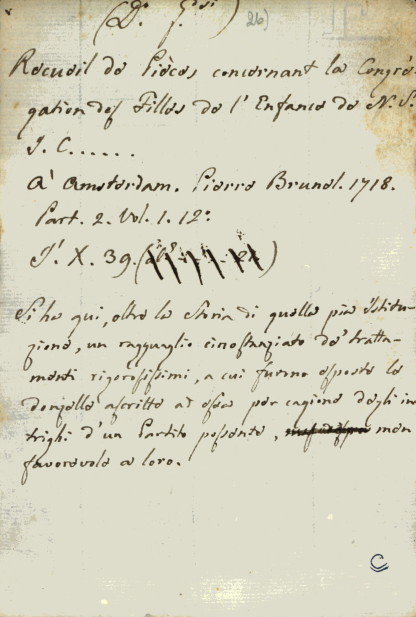 26)
Recueil de Pièces concernant la Congré-
gation des Filles de l'Enfance de N. S.
J. C......
A' Amsterdam. Pierre Brunel. 1718.
Part. 2. Vol. 1. 12°
J'. X. 39. (
Si ha qui, oltre la Storia di quella pia Istitu-
zione, un ragguaglio circostanziato de' tratta-
menti rigorosissimi, a cui furono esposte le
donzelle ascritte ad essa per cagione degli in-
trighi d'un Partito possente, men
favorevole a loro.
C